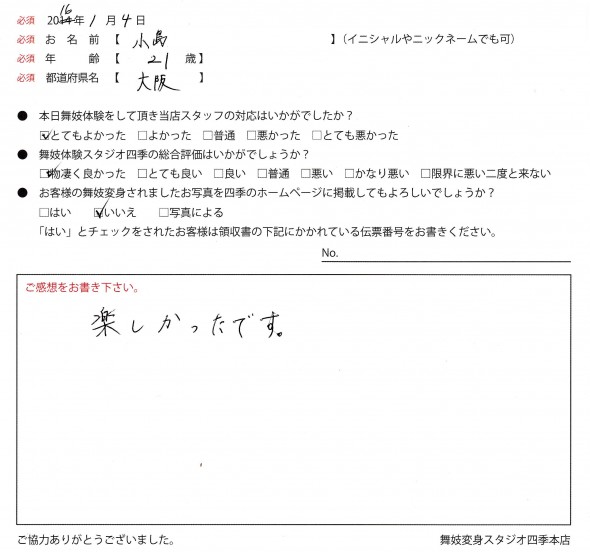 必須 2016年 1月 4日
必須 お名前【 小島 】（イニシャルやニックネームでも可）
必須 年齢【 21 歳】
必須 都道府県名【 大阪 】
● 本日舞妓体験をして頂き当店スタッフの対応はいかがでしたか？
☑とてもよかった □よかった □普通 □悪かった □とても悪かった
● 舞妓体験スタジオ四季の総合評価はいかがでしょうか？
☑物凄く良かった □とても良い □良い □普通 □悪い □かなり悪い □限界に悪い二度と来ない
● お客様の舞妓変身されましたお写真を四季のホームページに掲載してもよろしいでしょうか？
□はい ☑いいえ □写真による
「はい」とチェックをされたお客様は領収書の下記にかかれている伝票番号をお書きください。
No.
ご感想をお書き下さい。
楽しかったです。
ご協力ありがとうございました。
舞妓変身スタジオ四季本店